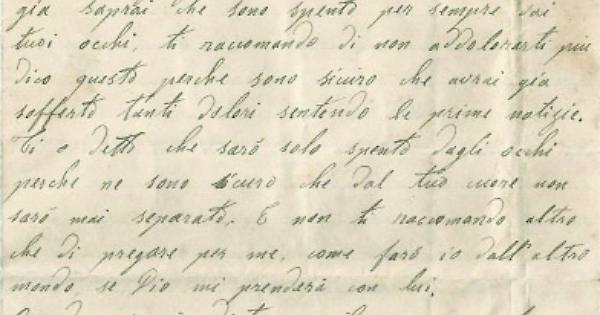 già saprai che sono spento per sempre dai
tuoi occhi, ti raccomando di non addolorarti più
dico questo perche sono sicuro che avrai già
sofferto tanti dolori sentendo le prime notizie.
Ti o detto che sarò solo spento dagli occhi
perche ne sono sicuro che dal tuo cuore non
sarò mai separato. E non ti raccomando altro
che di pregare per me, come farò io dall'altro
mondo, se Dio mi prenderà con lui.